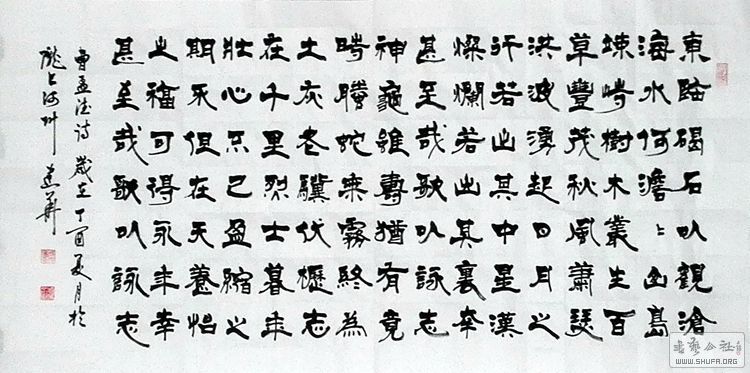 東臨碣石以觀滄
海水何澹〻山島
竦峙樹木叢生百
草豐茂秋風蕭瑟
洪波湧起日月之
行若出其中星漢
燦爛若出其裏幸
甚至哉歌以詠志
神龜雖壽猶有竟
時騰蛇乘霧終為
土灰老驥伏櫪志
在千里烈士暮年
壯心不已盈縮之
期不但在天養怡
之福可得永年幸
甚至哉歌以詠志
曹孟德詩歲在丁酉夏月於
隴上河州
WWW.SHUFA.ORG